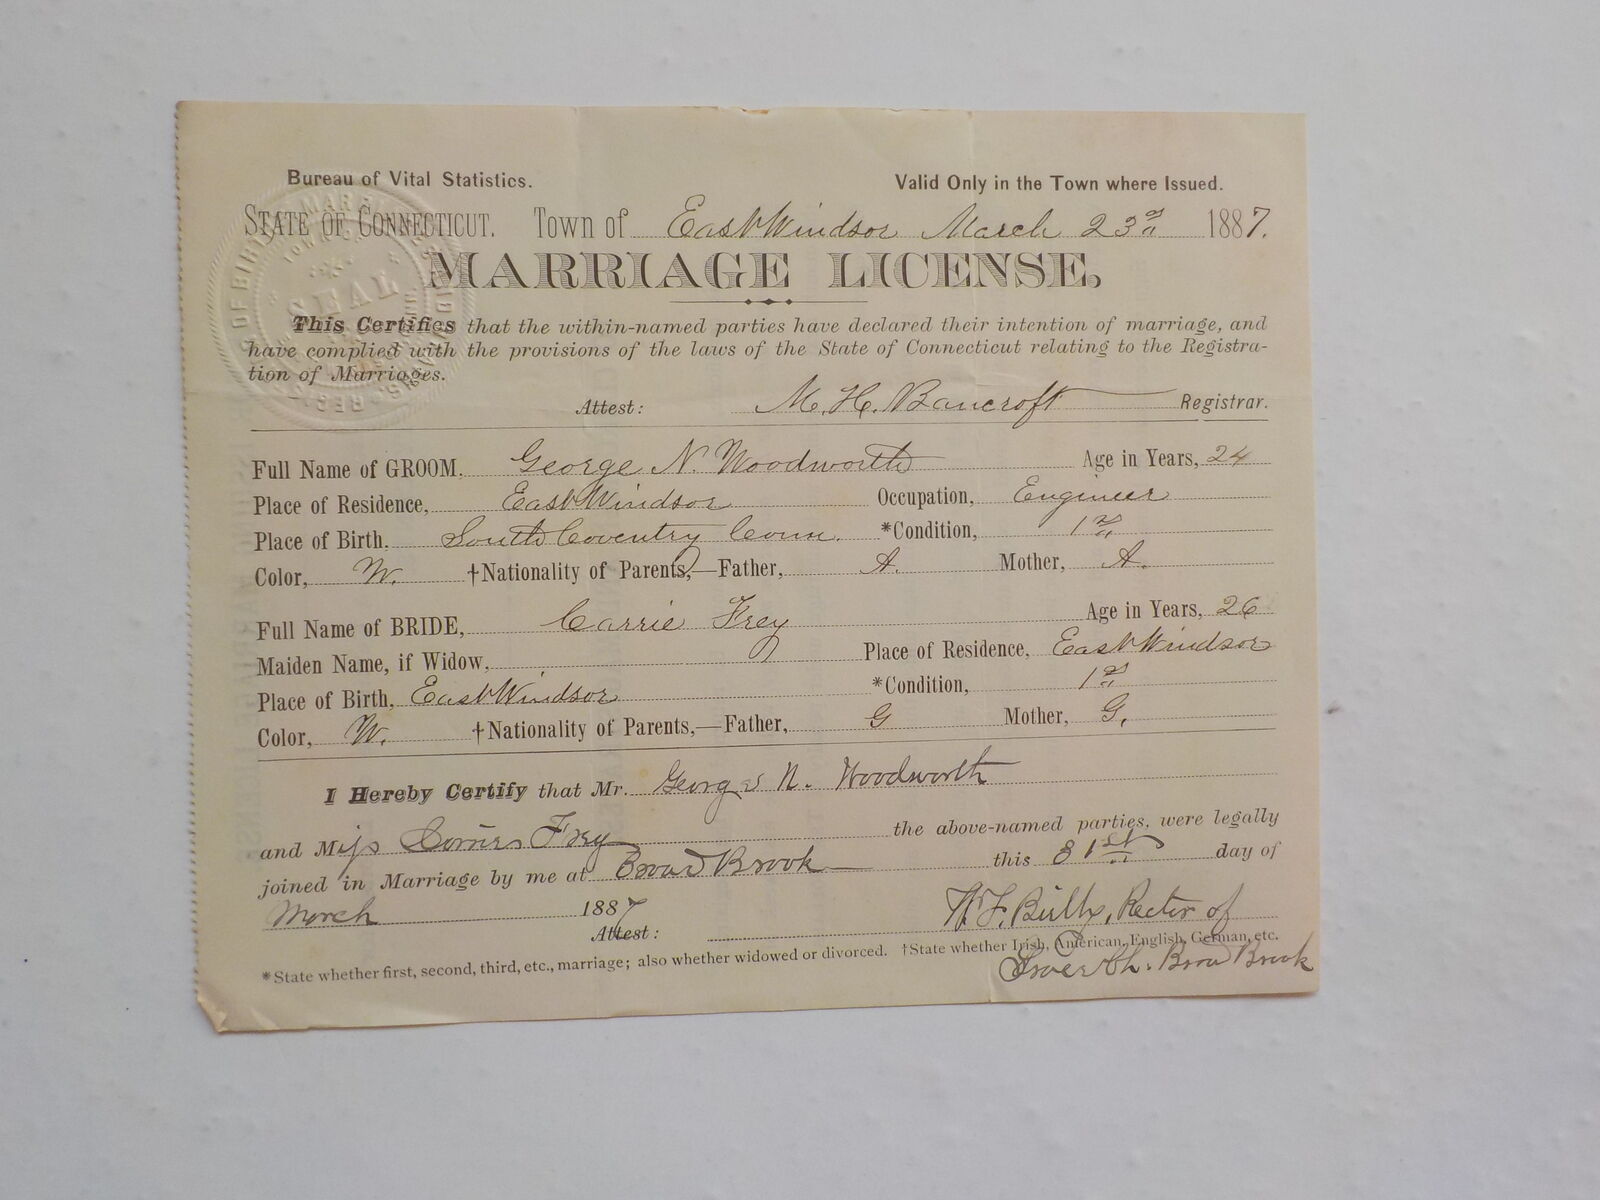 Bureau of Vital Statistics. Valid Only in the Town where Issued.
STATE OF CONNECTICUT. Town of East Windsor March 23rd 1887.
SEAL
MARRIAGE LICENSE.
This Certifies that the within-named parties have declared their intention of marriage, and
have complied with the provisions of the laws of the State of Connecticut relating to the Registra-
tion of Marriages.
Attest: M. H. Bancroft Registrar.
Full Name of GROOM, George N. Woodworth Age in Years, 24
Place of Residence, East Windsor Occupation, Engineer
Place of Birth, South Coventry Conn. *Condition, 1st
Color, W. †Nationality of Parents,—Father, A. Mother, A.
Full Name of BRIDE, Carrie Frey Age in Years, 26
Maiden Name, if Widow, Place of Residence, East Windsor
Place of Birth, East Windsor *Condition, 1st
Color, W. †Nationality of Parents,—Father, G Mother, G.
I Hereby Certify that Mr. George N. Woodworth
and Miss Frey the above-named parties, were legally
joined in Marriage by me at Broad Brook this 31st day of
March 1887
Attest: Rector of
*State whether first, second, third, etc., marriage; also whether widowed or divorced. †State whether Irish, American, English, German, etc.
Grace Ch. Broad Brook